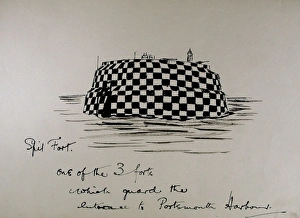 Spit Fort.
one of the 3 forts
which guard the
entrance to Portsmouth Harbour.